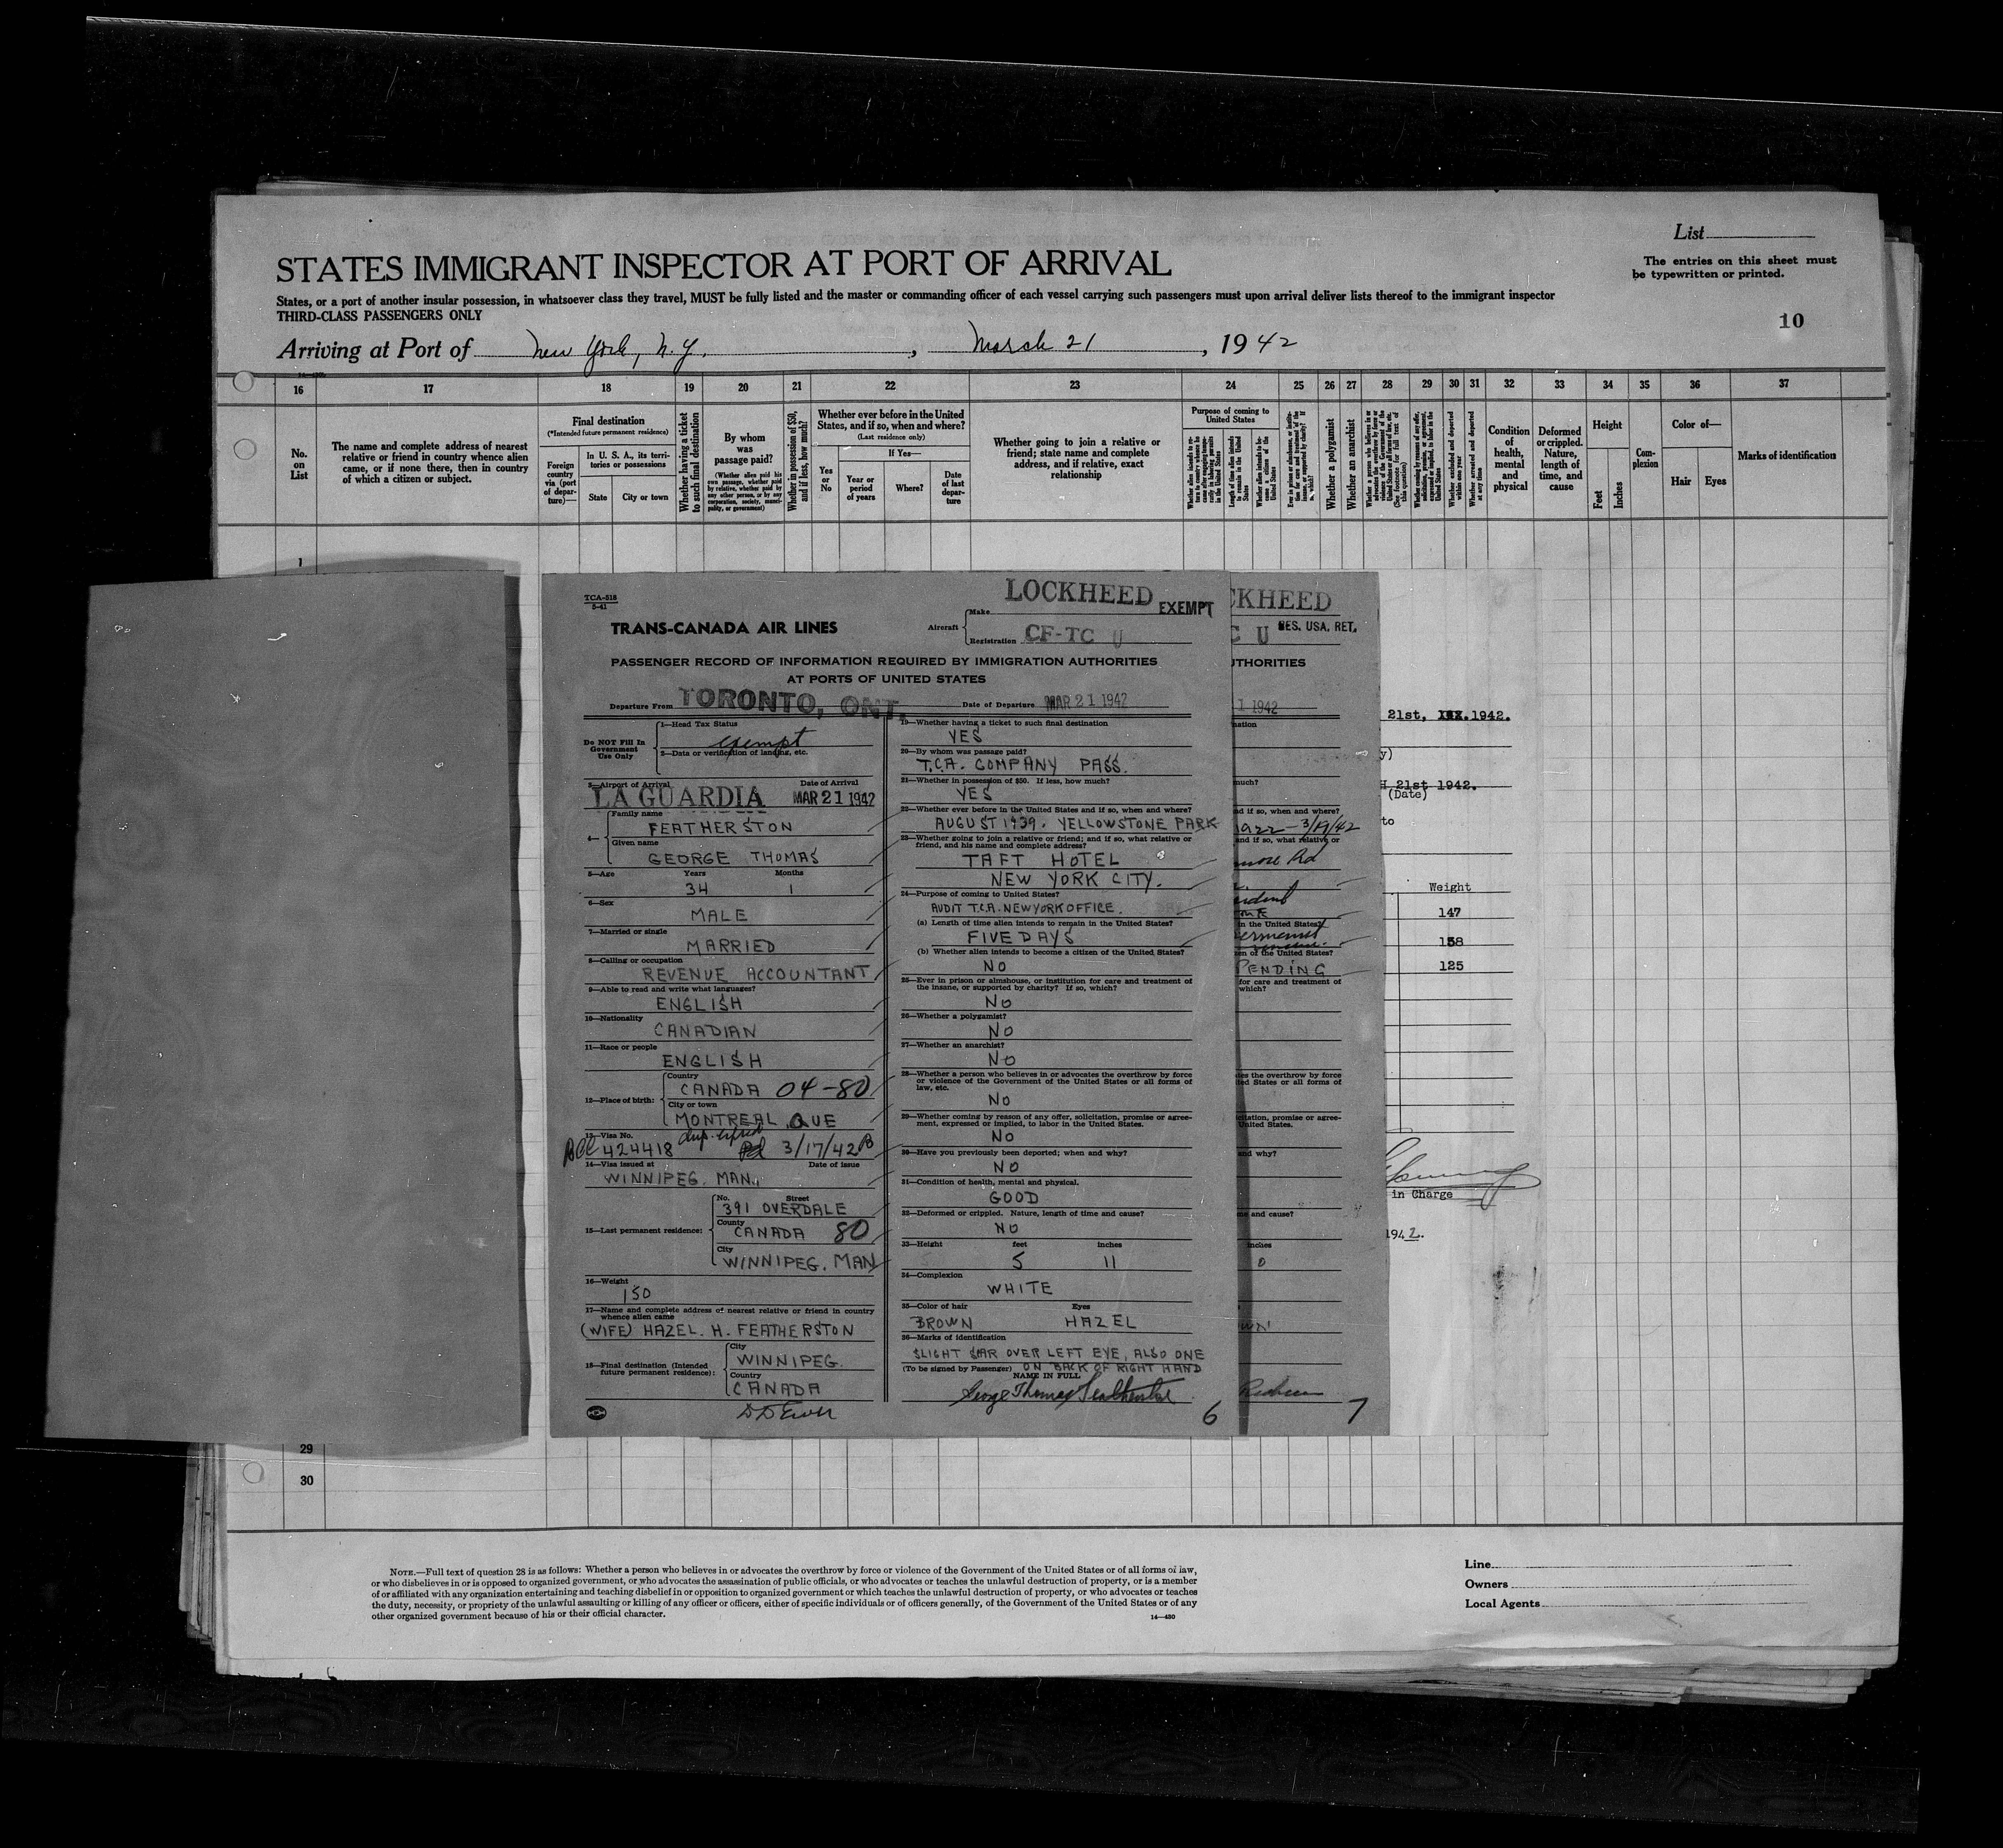 List
STATES IMMIGRANT INSPECTOR AT PORT OF ARRIVAL
The entries on this sheet must
be typewritten or printed.
States, or a port of another insular possession, in whatsoever class they travel, MUST be fully listed and the master or commanding officer of each vessel carrying such passengers must upon arrival deliver lists thereof to the immigrant inspector
THIRD-CLASS PASSENGERS ONLY
10
Arriving at Port of New York, N.Y., March 21, 1942
16 17 18 19 20 21 22 23 24 25 26 27 28 29 30 31 32 33 34 35 36 37
No. on List
The name and complete address of nearest relative or friend in country whence alien came, or if none there, then in country of which a citizen or subject.
Final destination
(*Intended future permanent residence)
Foreign country via (port of departure)—
In U. S. A., its territories or possessions
State
City or town
Whether having a ticket to such final destination
By whom was passage paid?
(Whether alien paid his own passage, whether paid by relative, whether paid by any other person, or by any corporation, society, municipality, or government)
Whether in possession of $50, and if less, how much?
Whether ever before in the United States, and if so, when and where?
(Last residence only)
Yes or No
If Yes—
Year or period of years
Where?
Date of last departure
Whether going to join a relative or friend; state name and complete address, and if relative, exact relationship
Purpose of coming to United States
Length of time alien intends to remain in the United States
Whether alien intends to become a citizen of the United States
Whether a polygamist
Whether an anarchist
Whether arrested and deported at any time
Condition of health, mental and physical
Deformed or crippled. Nature, length of time, and cause
Height
Feet
Inches
Complexion
Color of—
Hair
Eyes
Marks of identification
1
TCA-518
5-41
LOCKHEED EXEMPT
TRANS-CANADA AIR LINES
Aircraft
Make
Registration CF-TC U
PASSENGER RECORD OF INFORMATION REQUIRED BY IMMIGRATION AUTHORITIES
AT PORTS OF UNITED STATES
Departure From TORONTO, ONT. Date of Departure MAR 21 1942
Do NOT Fill In
Government
Use Only
1—Head Tax Status
exempt
2—Data or verification of landing, etc.
3—Airport of Arrival Date of Arrival
LA GUARDIA MAR 21 1942
4—
Family name
FEATHERSTON
Given name
GEORGE THOMAS
5—Age Years Months
34 1
6—Sex
MALE
7—Married or single
MARRIED
8—Calling or occupation
REVENUE ACCOUNTANT
9—Able to read and write what languages?
ENGLISH
10—Nationality
CANADIAN
11—Race or people
ENGLISH
12—Place of birth:
Country
CANADA 04-80
City or town
MONTREAL QUE
13—Visa No.
BCC 424418 3/17/42
14—Visa issued at Date of issue
WINNIPEG. MAN.
15—Last permanent residence:
No. Street
391 OVERDALE
County
CANADA 80
City
WINNIPEG. MAN
16—Weight
150
17—Name and complete address of nearest relative or friend in country
whence alien came
(WIFE) HAZEL. H. FEATHERSTON
18—Final destination (Intended
future permanent residence):
City
WINNIPEG.
Country
CANADA
19—Whether having a ticket to such final destination
YES
20—By whom was passage paid?
T.C.A. COMPANY PASS.
21—Whether in possession of $50. If less, how much?
YES
22—Whether ever before in the United States and if so, when and where?
AUGUST 1939. YELLOWSTONE PARK
23—Whether going to join a relative or friend; and if so, what relative or
friend, and his name and complete address?
TAFT HOTEL
NEW YORK CITY.
24—Purpose of coming to United States?
AUDIT T.C.A. NEW YORK OFFICE.
(a) Length of time alien intends to remain in the United States?
FIVE DAYS
(b) Whether alien intends to become a citizen of the United States?
NO
25—Ever in prison or almshouse, or institution for care and treatment of
the insane, or supported by charity? If so, which?
NO
26—Whether a polygamist?
NO
27—Whether an anarchist?
NO
28—Whether a person who believes in or advocates the overthrow by force
or violence of the Government of the United States or all forms of
law, etc.
NO
29—Whether coming by reason of any offer, solicitation, promise or agree-
ment, expressed or implied, to labor in the United States.
NO
30—Have you previously been deported; when and why?
NO
31—Condition of health, mental and physical.
GOOD
32—Deformed or crippled. Nature, length of time and cause?
NO
33—Height feet inches
5 11
34—Complexion
WHITE
35—Color of hair Eyes
BROWN HAZEL
36—Marks of identification
SLIGHT SCAR OVER LEFT EYE, ALSO ONE
(To be signed by Passenger) ON BACK OF RIGHT HAND
NAME IN FULL
George Thomas Featherston
6
CKHEED
C U RES. USA. RET.
UTHORITIES
1 1942
ination
much?
nd if so, when and where?
1922-3/19/42
and if so, what relative or
in the United States?
en of the United States?
PENDING
for care and treatment of
which?
tes the overthrow by force
ited States or all forms of
citation, promise or agree-
United States.
and why?
me and cause?
inches
0
7
21st, 1942.
y)
H 21st 1942.
(Date)
to
Weight
147
158
125
in Charge
1942.
29
30
NOTE.—Full text of question 28 is as follows: Whether a person who believes in or advocates the overthrow by force or violence of the Government of the United States or of all forms of law,
or who disbelieves in or is opposed to organized government, or who advocates the assassination of public officials, or who advocates or teaches the unlawful destruction of property, or is a member
of or affiliated with any organization entertaining and teaching disbelief in or opposition to organized government or which teaches the unlawful destruction of property, or who advocates or teaches
the duty, necessity, or propriety of the unlawful assaulting or killing of any officer or officers, either of specific individuals or of officers generally, of the Government of the United States or of any
other organized government because of his or their official character.
14—430
Line
Owners
Local Agents